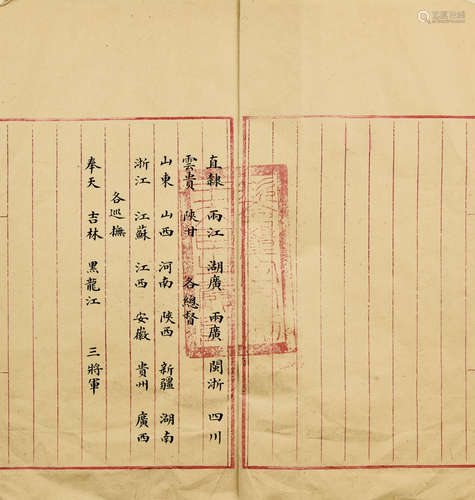 直隸 兩江 湖廣 兩廣 閩浙 四川
雲貴 陝甘 各總督
山東 山西 河南 陝西 新疆 湖南
浙江 江蘇 江西 安徽 貴州 廣西
各巡撫
奉天 吉林 黑龍江 三將軍